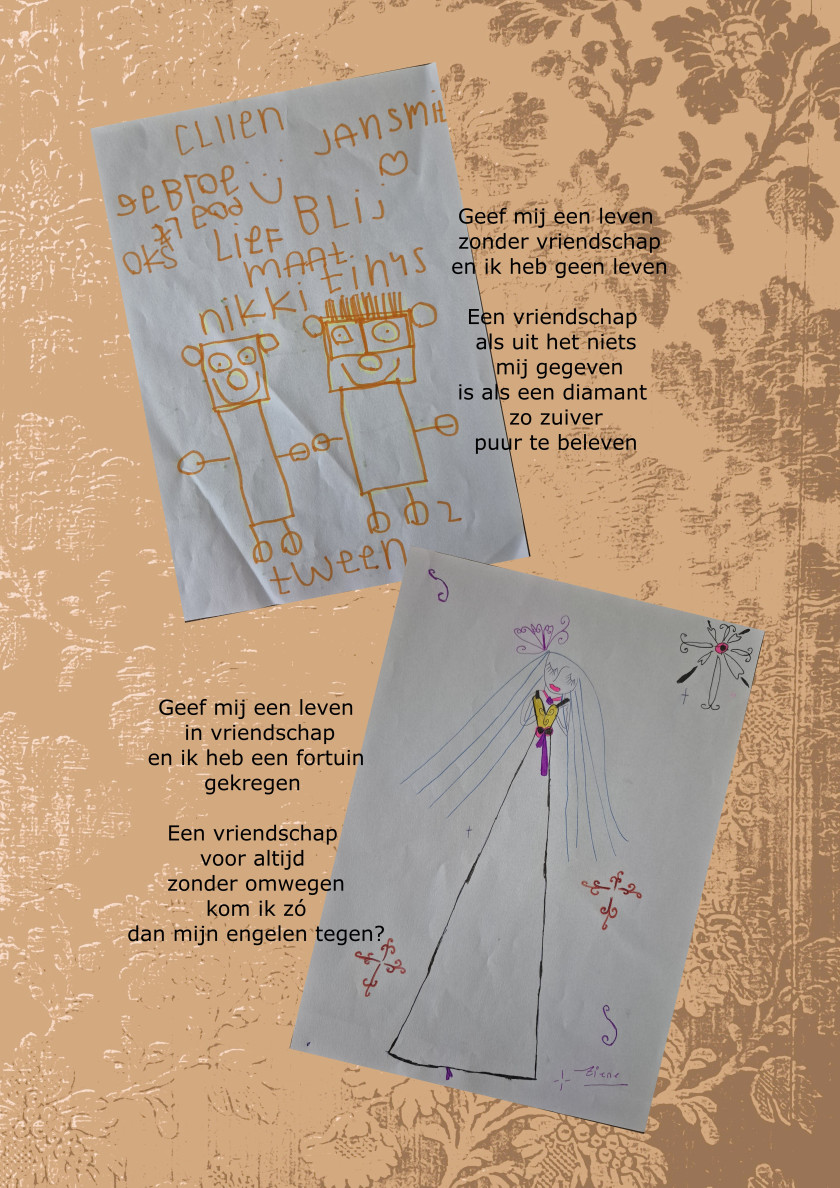 CLIIEN
JANSMIt
geBroe
BLIJ
LIEF
OKS
MAAT
tinys
nikki
2
tween
Geef mij een leven
zonder vriendschap
en ik heb geen leven
Een vriendschap
als uit het niets
mij gegeven
is als een diamant
zo zuiver
puur te beleven
Geef mij een leven
in vriendschap
en ik heb een fortuin
gekregen
Een vriendschap
voor altijd
zonder omwegen
kom ik zó
dan mijn engelen tegen?